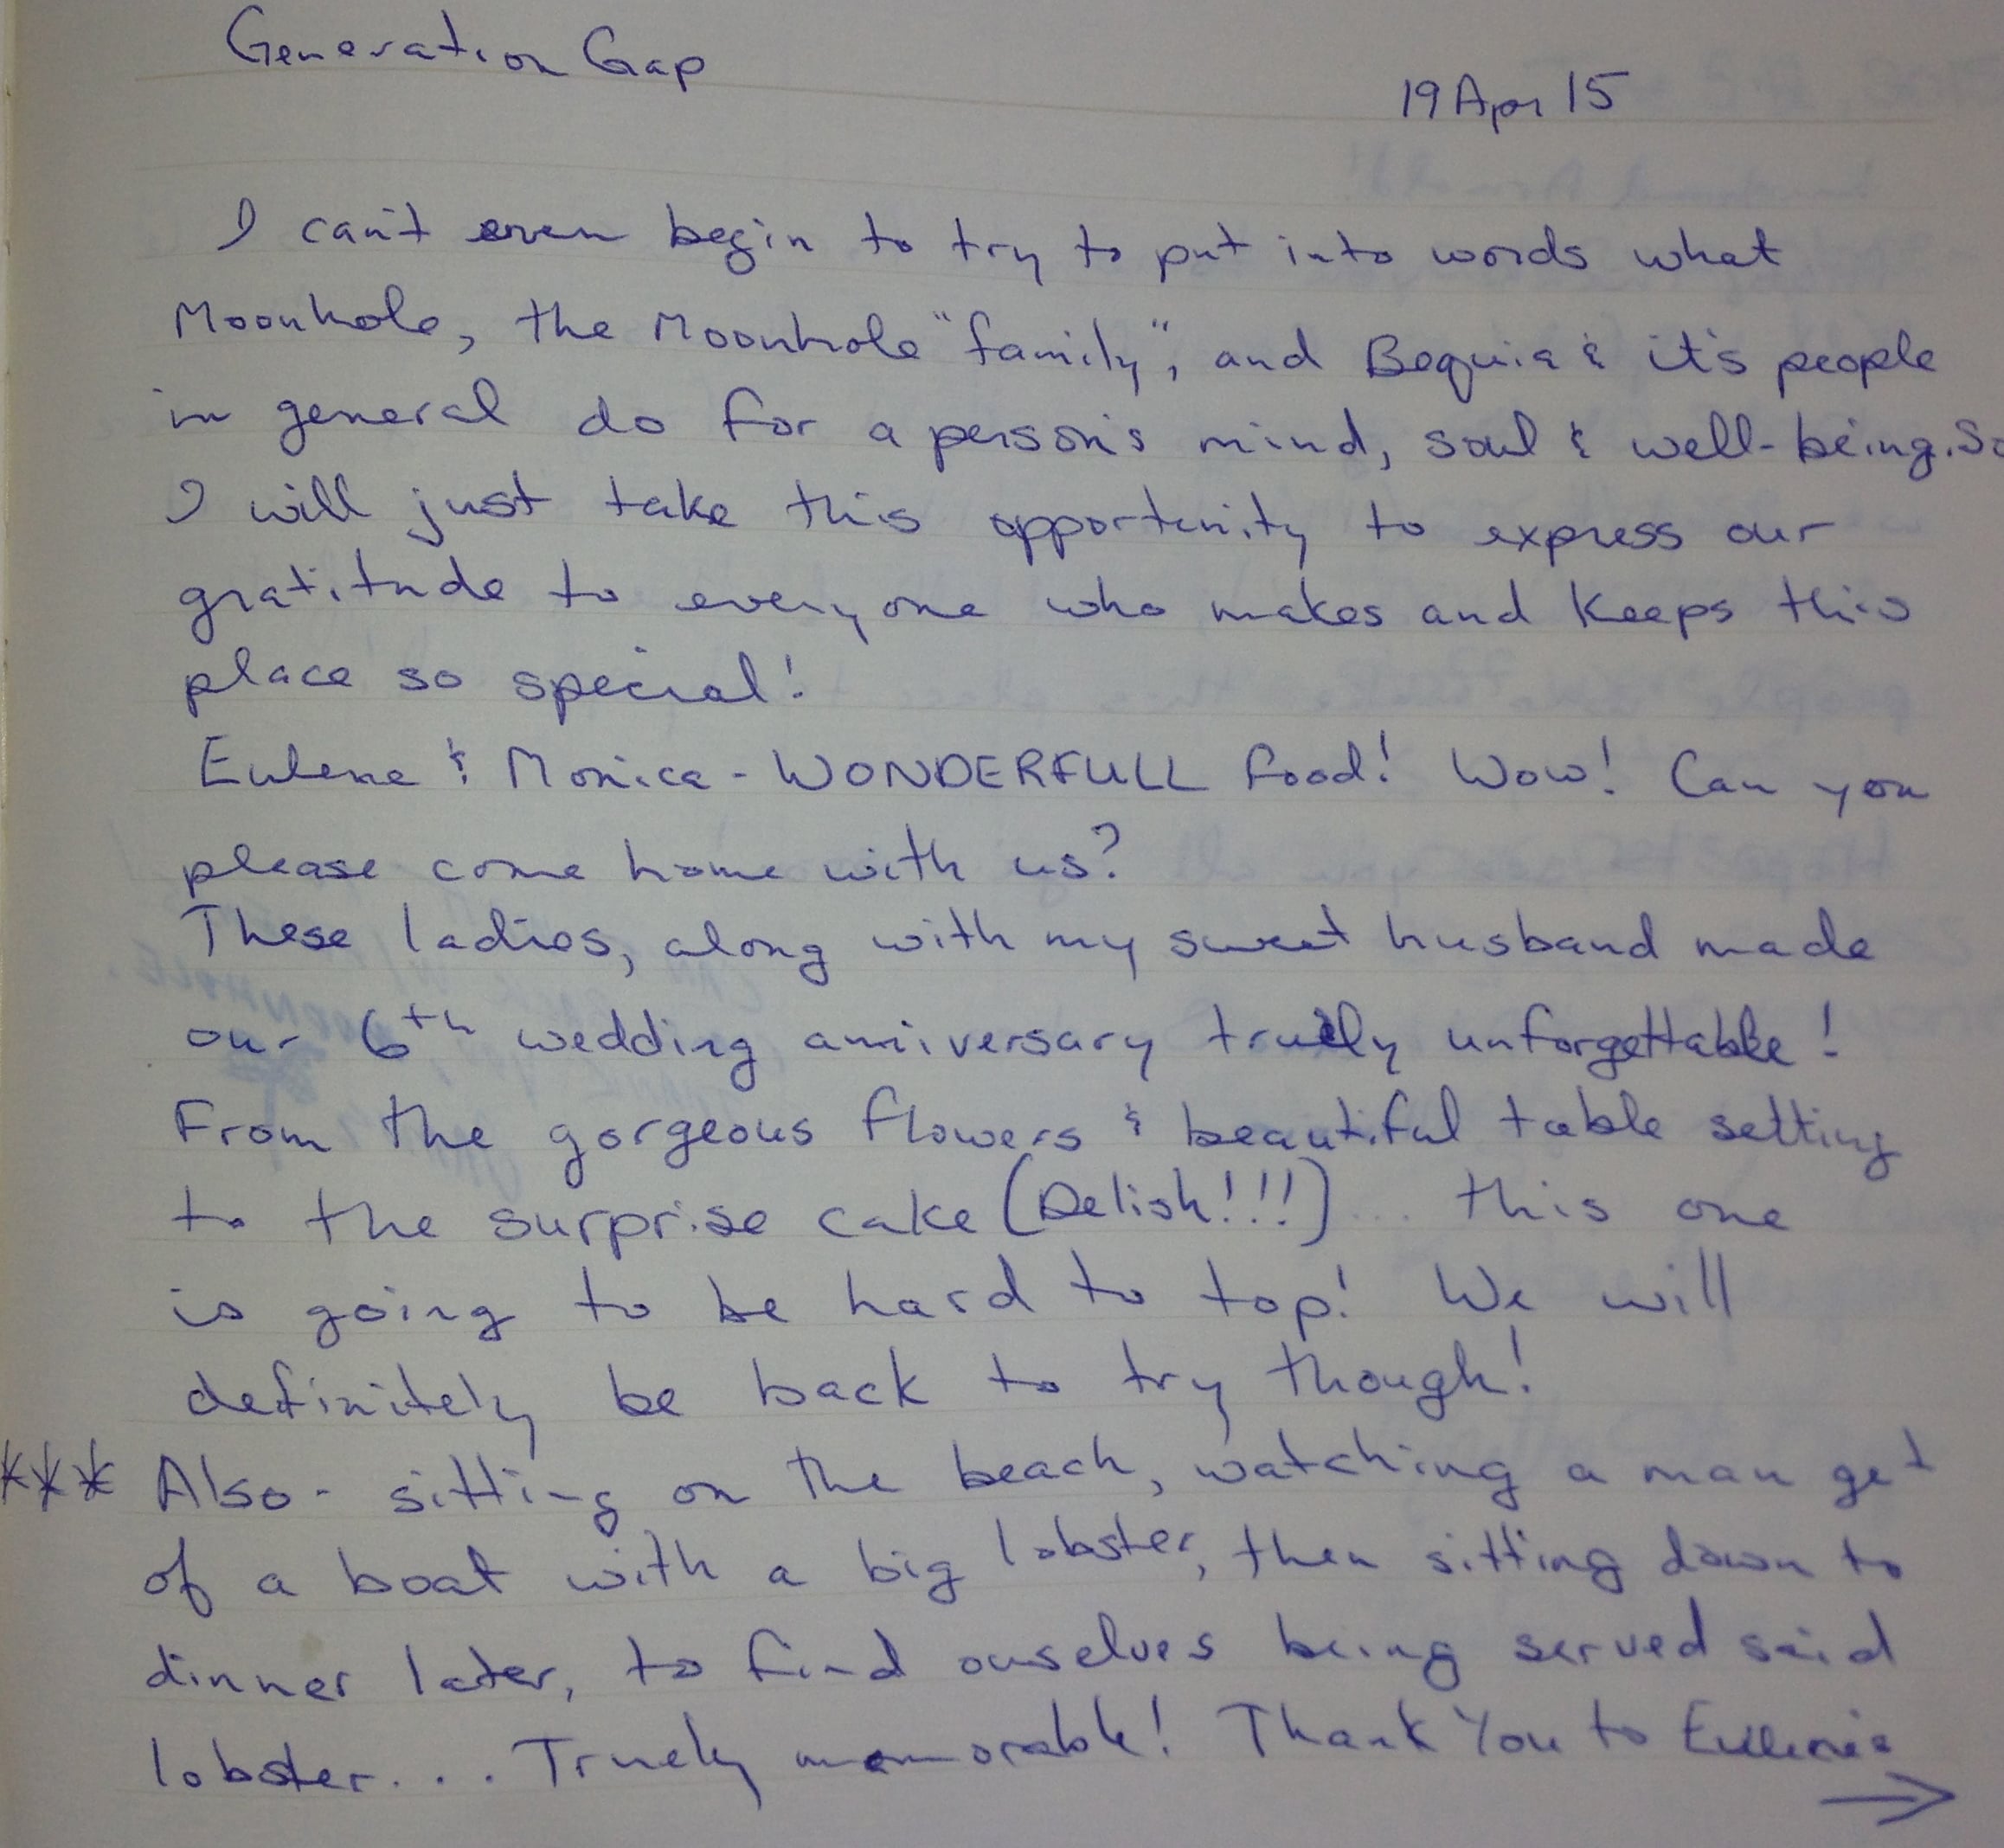 Generation Gap
19 Apr 15
I can't even begin to try to put into words what
Moonhole, the Moonhole "family", and Bequia & it's people
in general do for a person's mind, soul & well-being. So
I will just take this opportunity to express our
gratitude to everyone who makes and keeps this
place so special!
Eulene & Monica - WONDERFULL food! Wow! Can you
please come home with us?
These ladies, along with my sweet husband made
our 6th wedding anniversary truely unforgettable!
From the gorgeous flowers & beautiful table setting
to the surprise cake (Delish!!!) ... this one
is going to be hard to top! We will
definitely be back to try though!
*** Also - sitting on the beach, watching a man get
of a boat with a big lobster, then sitting down to
dinner later, to find ourselves being served said
lobster.... Truely memorable! Thank You to Eulene's
→